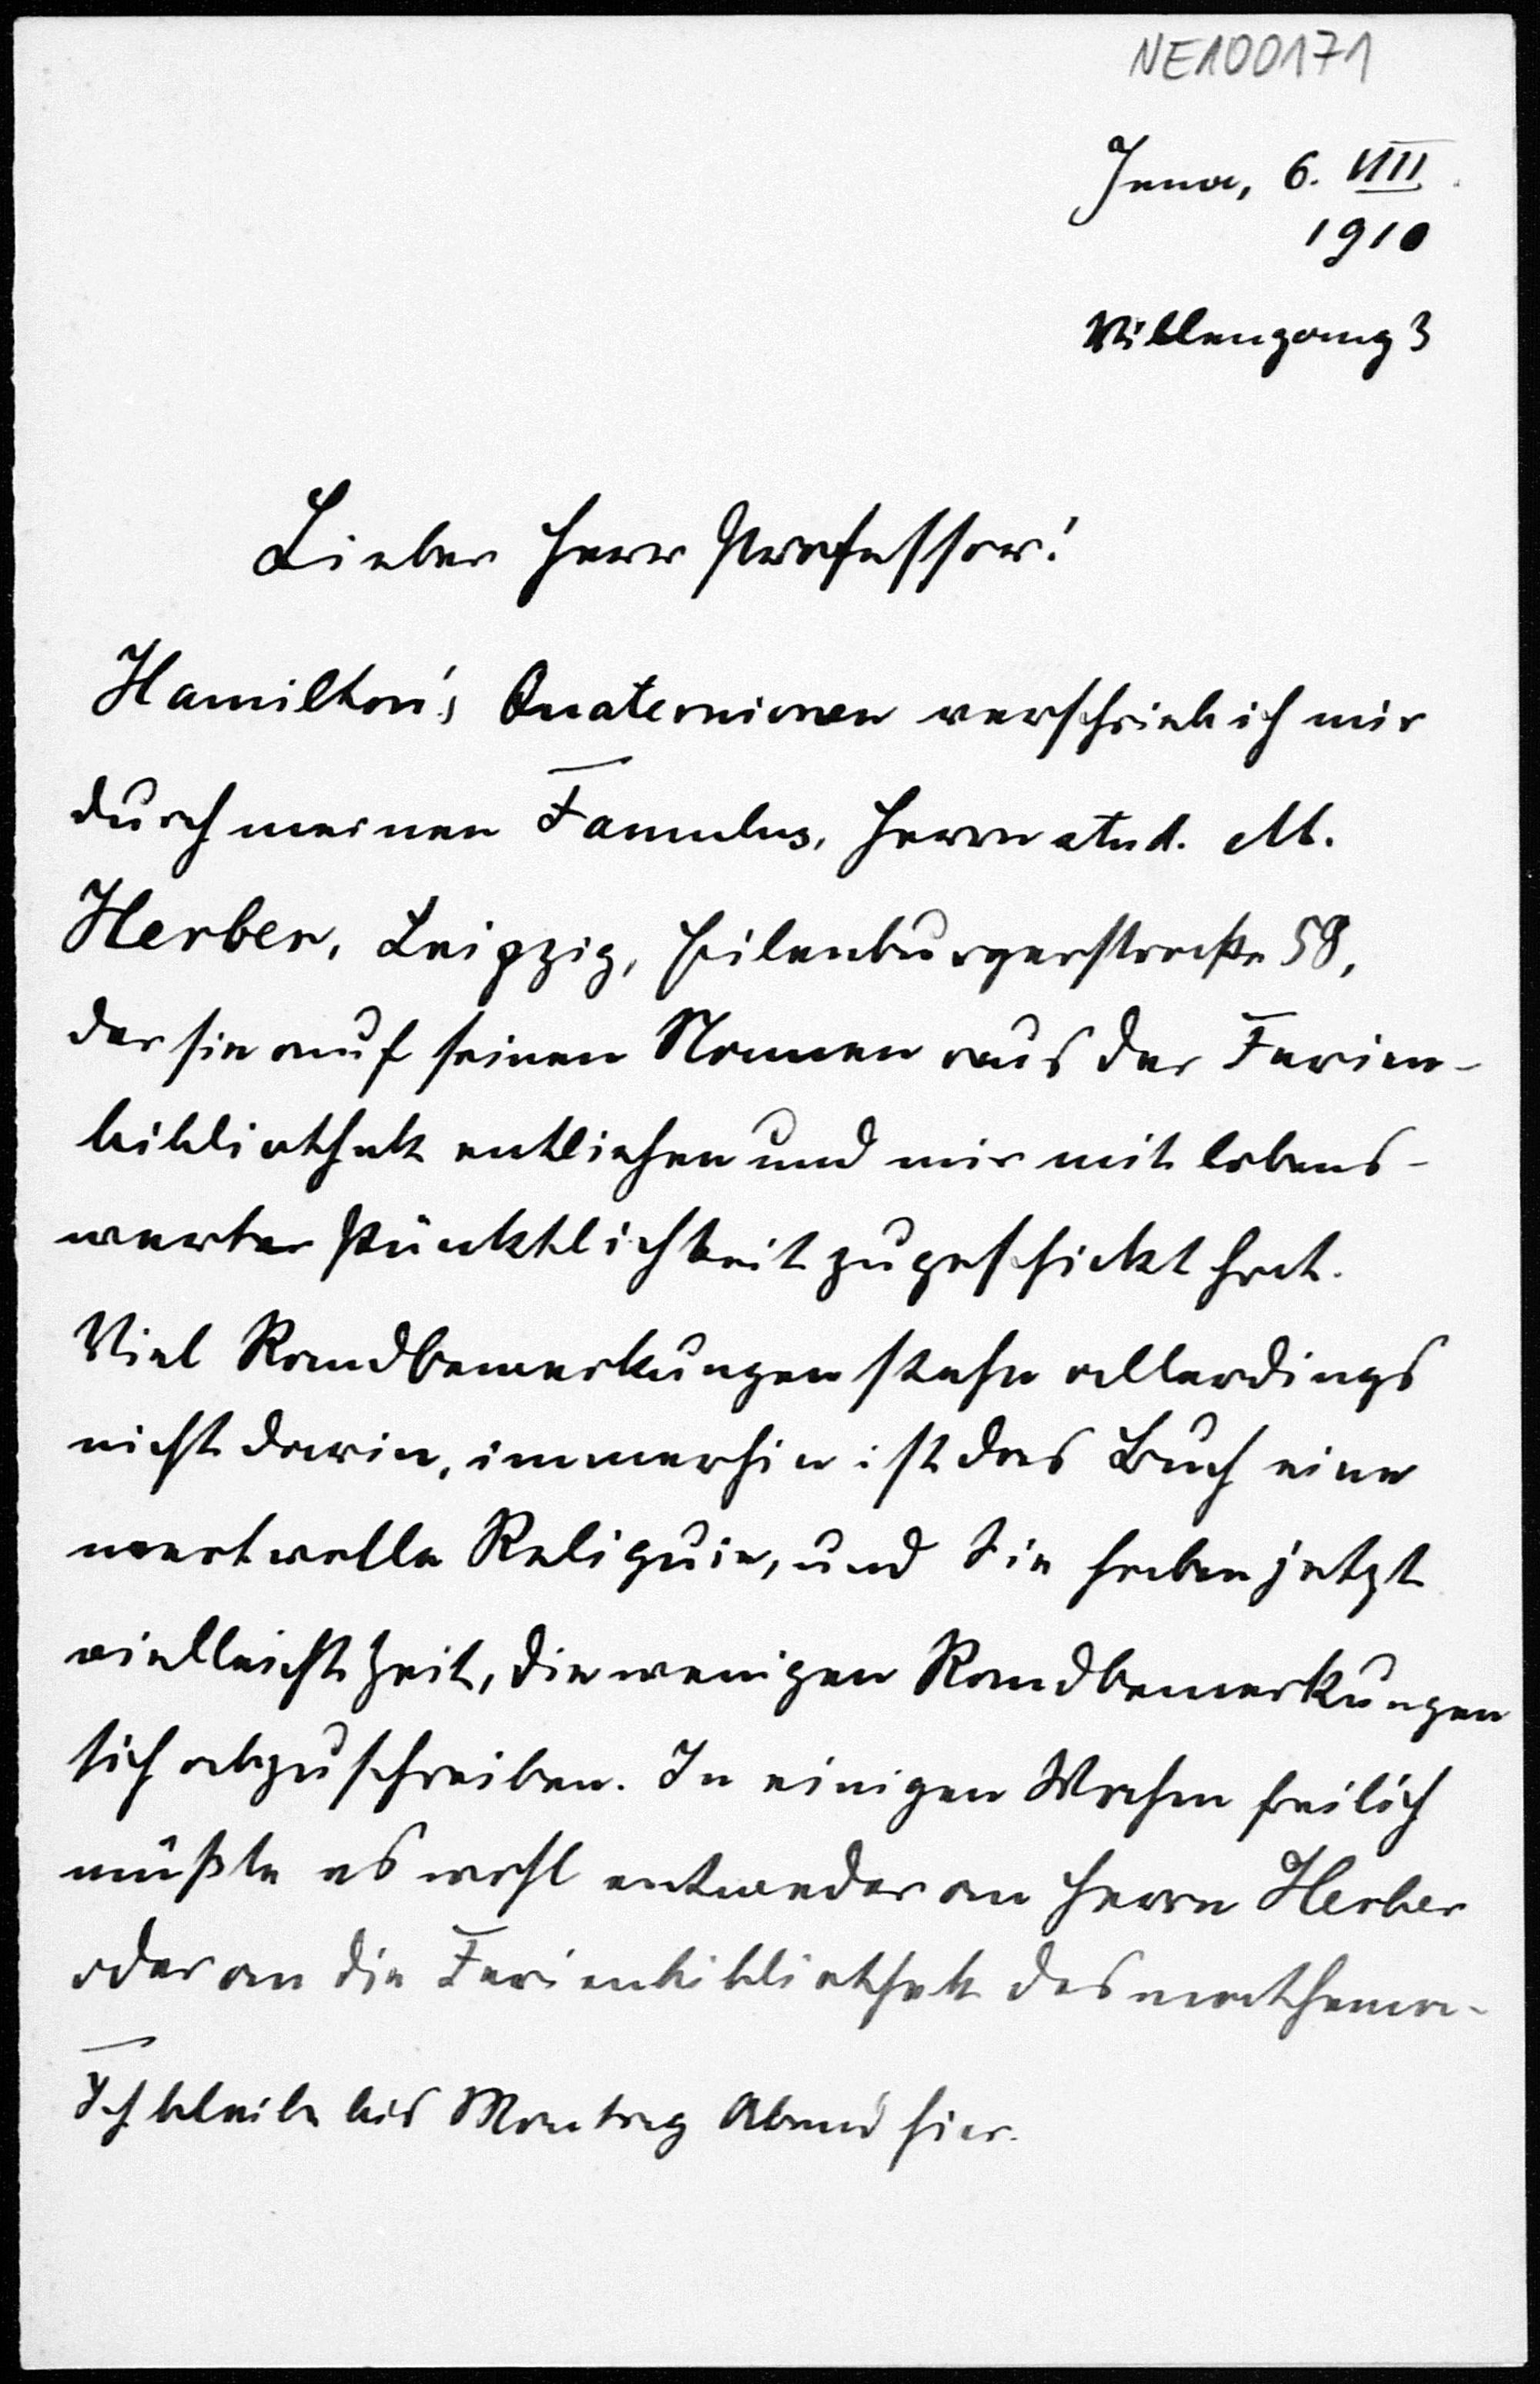 NE100171
Jena, 6. VIII.
1910
Villengang 3
Lieber Herr Professor!
Hamilton's Quaternionen verschrieb ich mir
durch meinen Famulus, Herrn stud. M.
Herber, Leipzig, Eilenburgerstraße 58,
der sie auf seinen Namen aus der Ferien-
bibliothek entliehen und mir mit lobens-
werter Pünktlichkeit zugeschickt hat.
Viel Randbemerkungen stehn allerdings
nicht darin, immerhin ist das Buch eine
wertvolle Reliquie, und Sie haben jetzt
vielleicht Zeit, die wenigen Randbemerkungen
sich abzuschreiben. In einigen Wochen freilich
müßte es wohl entweder an Herrn Herber
oder an die Ferienbibliothek des mathema-
Ich bleibe bis Montag Abend hier.